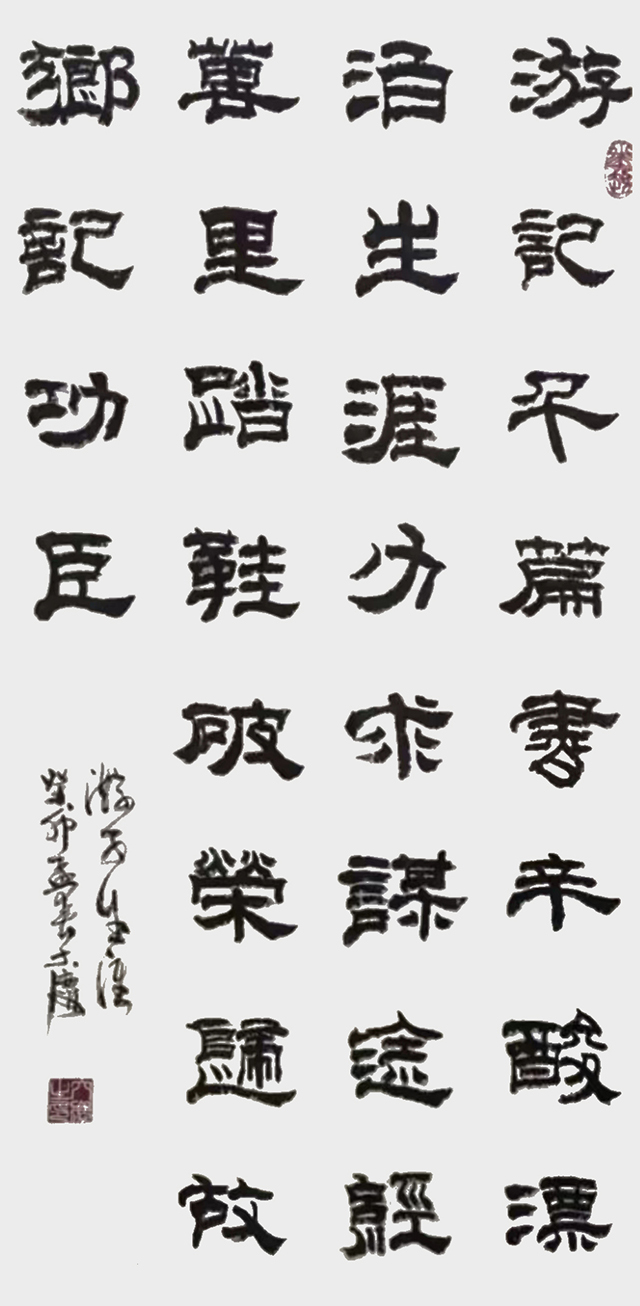 游記千篇書辛酸漂
泊生涯力求謀途經
萬里踏鞋破榮歸故
鄉記功臣
游子生涯
癸卯孟春